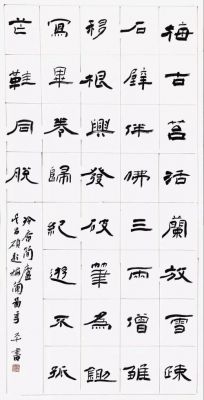 梅古苔活蘭放雪疎
石壁伴佛三兩僧雛
移根興發破筆為鋤
寫畢卷歸紀遊不孤
芒鞋同脫
昌碩題梅蘭
書